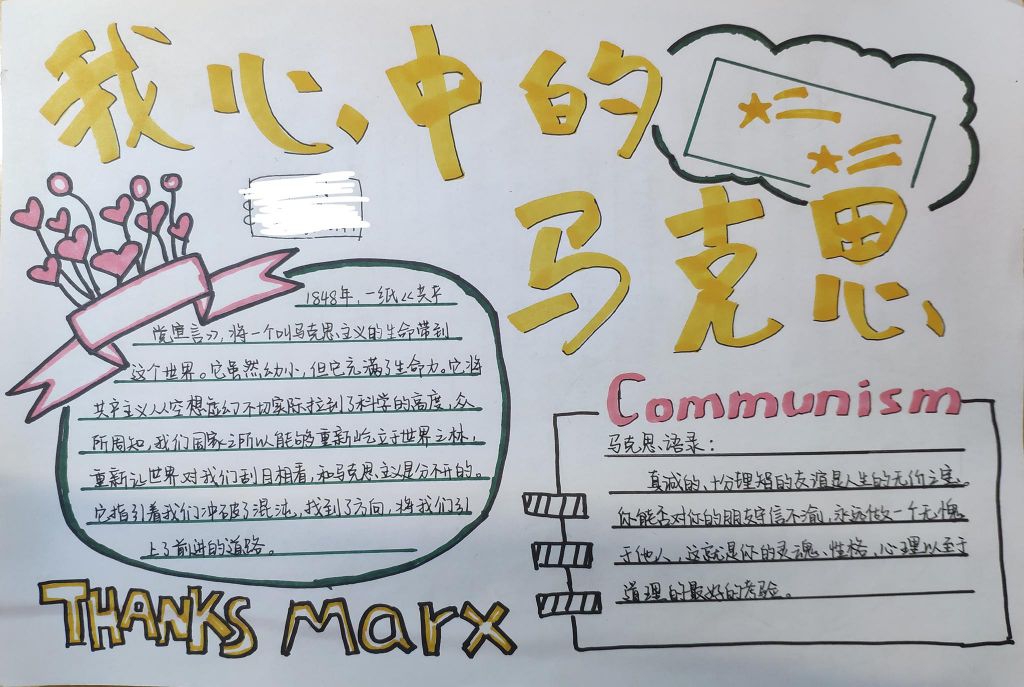 我心中的
马克思
1848年,一纸《共产
党宣言》,将一个叫马克思主义的生命带到
这个世界。它虽然幼小,但它充满了生命力。它将
共产主义从空想虚幻不切实际拉到了科学的高度,众
所周知,我们国家之所以能够重新屹立于世界之林,
重新让世界对我们刮目相看,和马克思主义是分不开的。
它指引着我们冲破了混沌,找到了方向,将我们引
上了前进的道路。
Communism
马克思语录:
真诚的、十分理智的友谊是人生的无价之宝。
你能否对你的朋友守信不渝,永远做一个无愧
于他人,这就是你的灵魂、性格、心理以至于
道理的最好的考验。
THANKS Marx